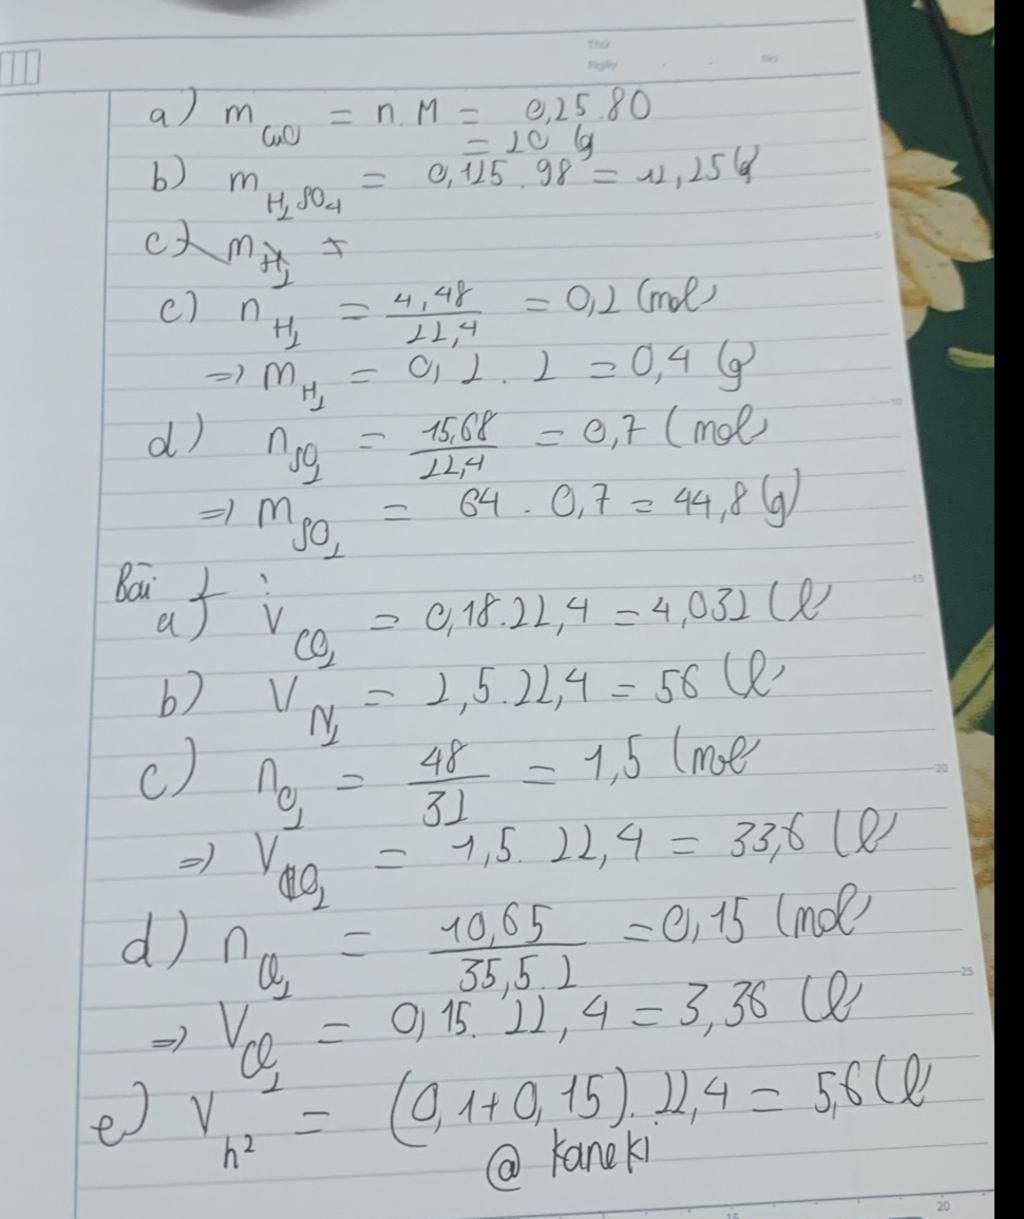 Thứ
Ngày . . No
a) m CuO = n.M = 0,25.80
= 20 (g
b) m H2SO4 = 0,125.98 = 12,25(g
c) m H2 =
c) n H2 = 4,48/22,4 = 0,2 (mol
=> m H2 = 0,2.2 = 0,4 (g)
d) n SO2 = 15,68/22,4 = 0,7 (mol
=> m SO2 = 64.0,7 = 44,8 (g)
Bài :
a) V CO2 = 0,18.22,4 = 4,032 (l
b) V N2 = 2,5.22,4 = 56 (l
c) n O2 = 48/32 = 1,5 (mol
=> V O2 = 1,5.22,4 = 33,6 (l
d) n Cl2 = 10,65/35,5.2 = 0,15 (mol
=> V Cl2 = 0,15.22,4 = 3,36 (l
e) V h2 = (0,1+0,15).22,4 = 5,6 (l
@ Kaneki
5
10
15
20
25
15
20